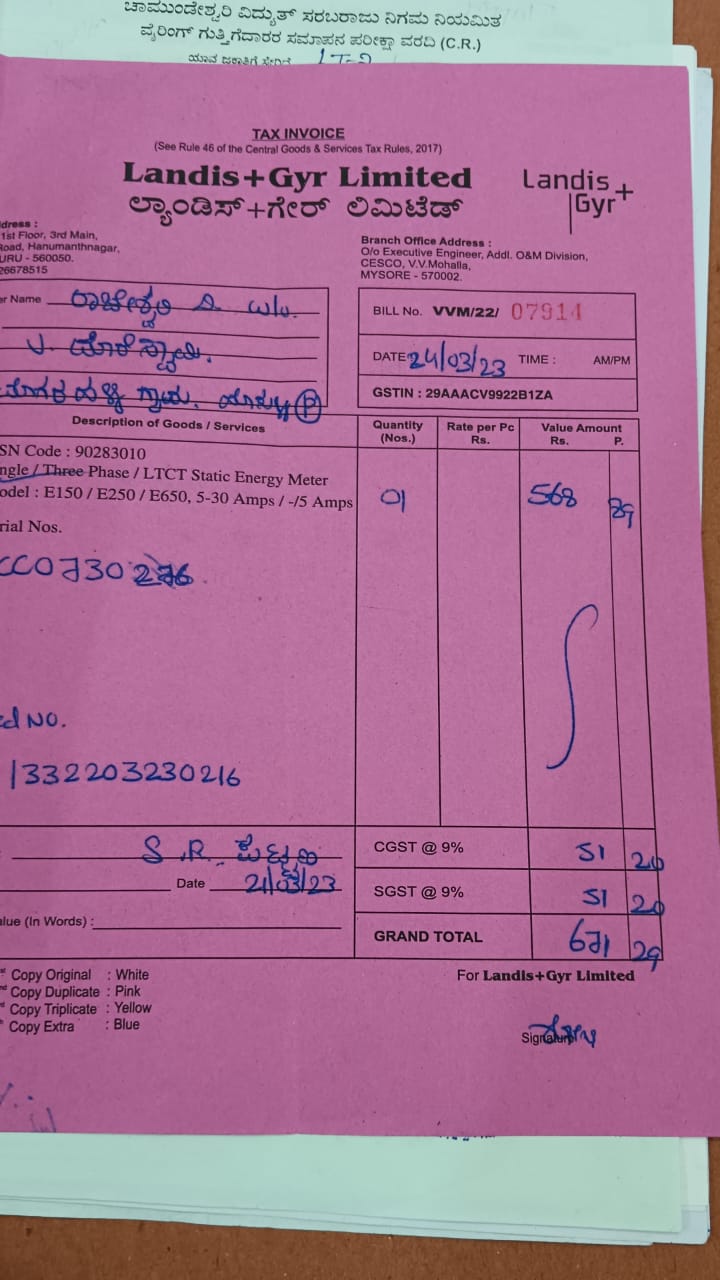 ಚಾಮುಂಡೇಶ್ವರಿ ವಿದ್ಯುತ್ ಸರಬರಾಜು ನಿಗಮ ನಿಯಮಿತ
ವೈರಿಂಗ್ ಗುತ್ತಿಗೆದಾರರ ಸಮಾಪನ ಪರೀಕ್ಷಾ ವರದಿ (C.R.)
TAX INVOICE
(See Rule 46 of the Central Goods & Services Tax Rules, 2017)
Landis+Gyr Limited
Landis+
Gyr
ಲ್ಯಾಂಡಿಸ್+ಗೇರ್ ಲಿಮಿಟೆಡ್
dress :
1st Floor, 3rd Main,
Road, Hanumanthnagar,
URU - 560050.
26678515
Branch Office Address :
O/o Executive Engineer, Addl. O&M Division,
CESCO, V.V.Mohalla,
MYSORE - 570002.
er Name
W/o.
BILL No. VVM/22/ 07914
DATE 24/03/23 TIME : AM/PM
GSTIN : 29AAACV9922B1ZA
Description of Goods / Services
Quantity (Nos.)
Rate per Pc Rs.
Value Amount Rs. P.
SN Code : 90283010
ngle / Three Phase / LTCT Static Energy Meter
odel : E150 / E250 / E650, 5-30 Amps / -/5 Amps
01 568 89
rial Nos.
CC0730276
ed No.
1332203230216
S.R.
Date 21/03/23
CGST @ 9% 51 20
SGST @ 9% 51 20
alue (In Words) :
GRAND TOTAL 671 29
Copy Original : White
Copy Duplicate : Pink
Copy Triplicate : Yellow
Copy Extra : Blue
For Landis+Gyr Limited
Signature